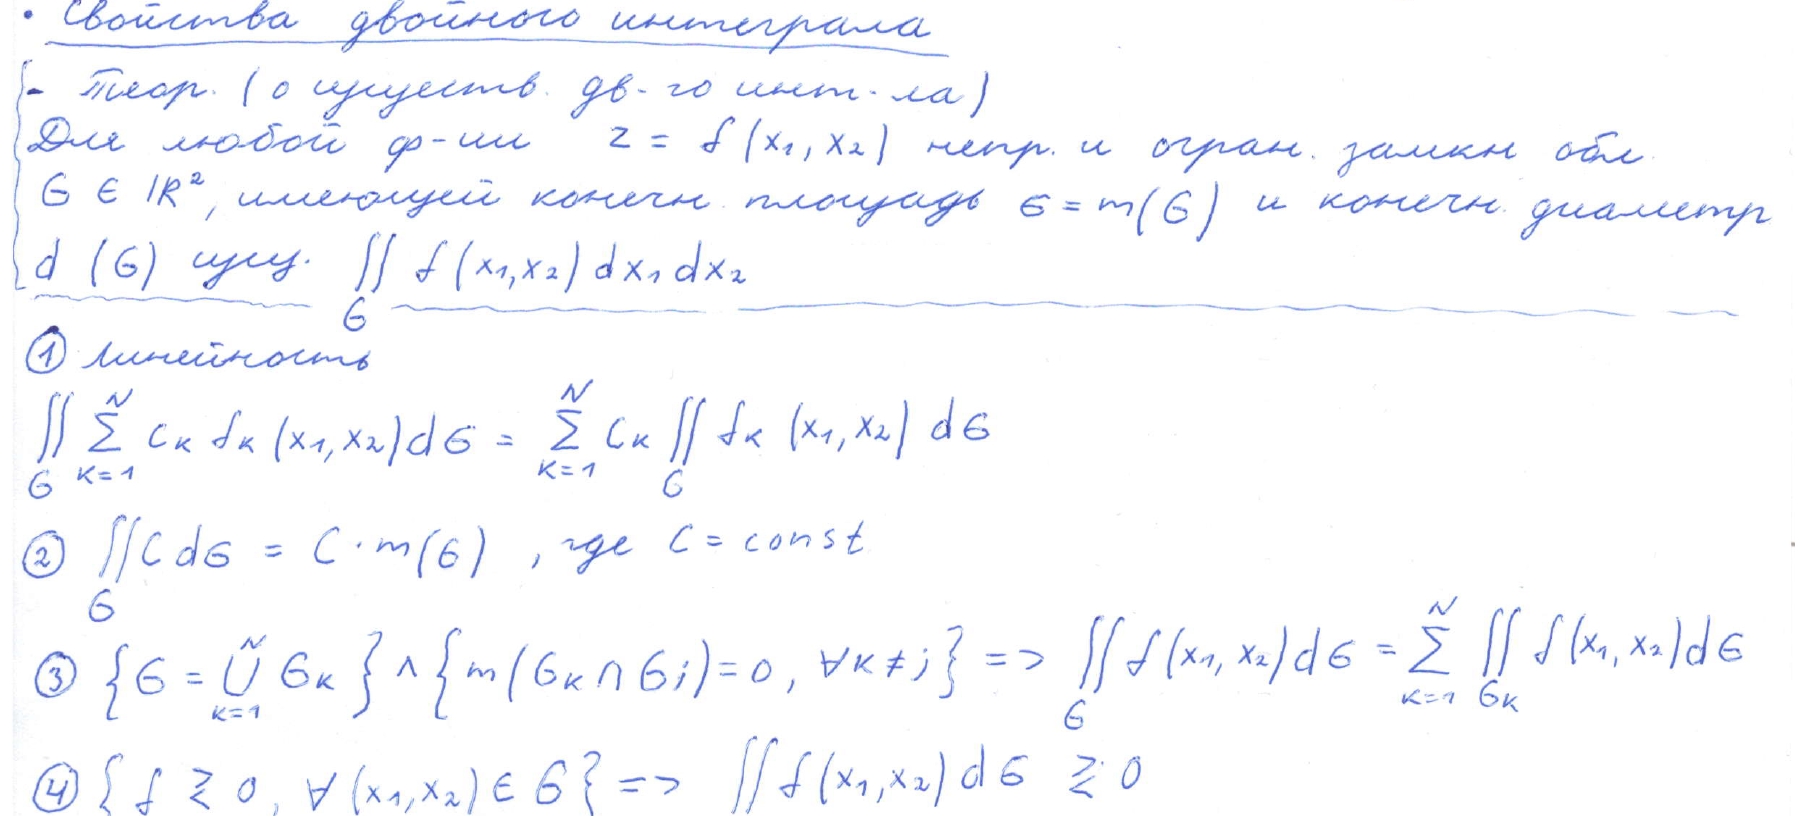 • Свойства двойного интеграла
- Теор. (о существ. дв-го инт-ла)
Для любой ф-ии z = f(x₁, x₂) непр. и огран. замкн обл.
G ∈ ℝ², имеющей конечн. площадь σ = m(G) и конечн. диаметр
d(G) сущ. ∬_G f(x₁,x₂) dx₁ dx₂
① Линейность
∬_G ∑_{k=1}^N C_k f_k (x₁,x₂) dσ = ∑_{k=1}^N C_k ∬_G f_k (x₁,x₂) dσ
② ∬_G C dσ = C · m(G) , где C = const
③ {G = ⋃_{k=1}^N G_k} ∧ {m(G_k ∩ G_j) = 0, ∀k ≠ j} => ∬_G f(x₁, x₂) dσ = ∑_{k=1}^N ∬_{G_k} f(x₁, x₂) dσ
④ {f ≷ 0, ∀(x₁,x₂) ∈ G} => ∬ f(x₁,x₂) dσ ≷ 0